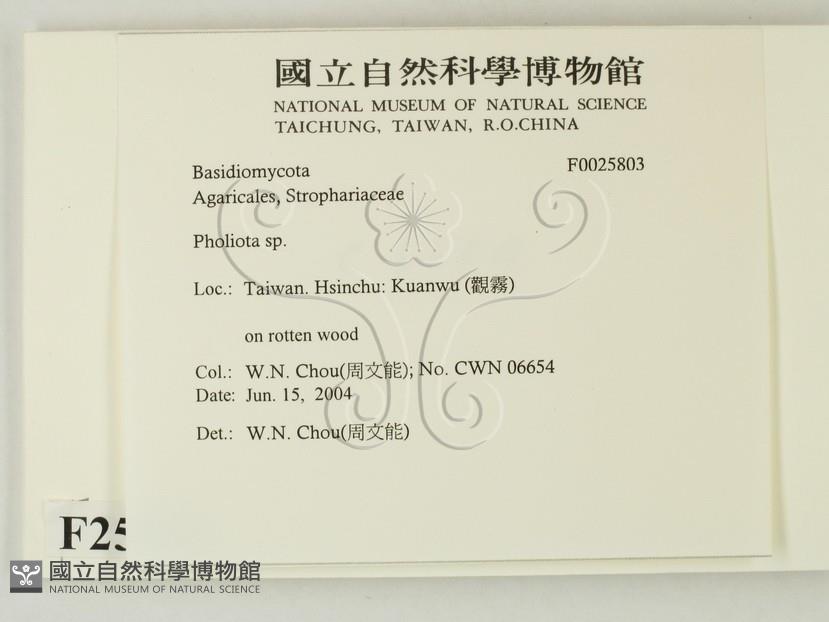 國立自然科學博物館
NATIONAL MUSEUM OF NATURAL SCIENCE
TAICHUNG, TAIWAN, R.O.CHINA
Basidiomycota F0025803
Agaricales, Strophariaceae
Pholiota sp.
Loc.: Taiwan. Hsinchu: Kuanwu (觀霧)
on rotten wood
Col.: W.N. Chou(周文能); No. CWN 06654
Date: Jun. 15, 2004
Det.: W.N. Chou(周文能)
F25
國立自然科學博物館
NATIONAL MUSEUM OF NATURAL SCIENCE